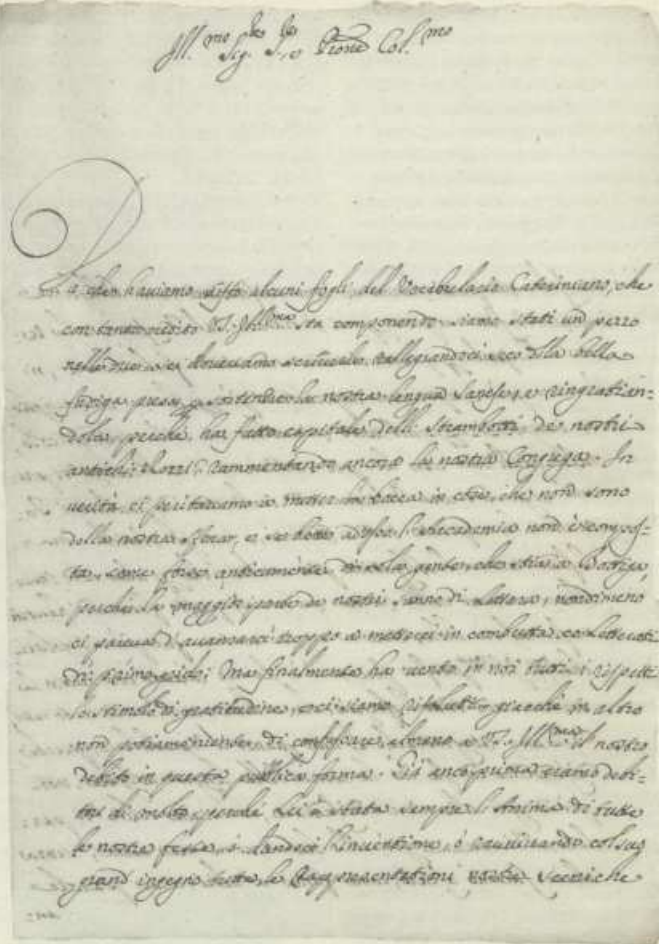 Ill.mo Sig.re S.re, e P.rone Col.mo
Da che haviamo visto alcuni fogli del Vocabulario Cateriniano, che
con tanto credito V.S. Ill.ma sta componendo siamo stati un pezzo
nelle due se dovevamo scriverle, rallegrandoci seco della bella
fadiga presa p sostenere la nostra lengua Sanese, e ringratian=
dola perchè ha fatto capitale delli Strambotti de nostri
antichi Rozzi, rammentando ancora la nostra Congrega. In
verità ci peritavamo a metter la bocca in cose, che non sono
della nostra sfera, e se bene adesso l'Accademia non è compos=
ta come forse anticamente di sola gente, che stia a Bottega,
perchè la maggior parte de nostri sanno di lettera, nondimeno
ci pareva d'avanzarci troppo a metterci in combutta co Letterati
di primo grido; Ma finalmente ha vento in noi tutti i rispetti
lo stimolo di gratitudine, e ci siamo risoluti, giacchè in altro
non potiamo, di confessare almeno a V.S. Ill.ma il nostro
debito in questa publica forma. Già anco prima eramo debi=
tori di molto, perchè Lei è stata sempre l'Anima di tutte
le nostre feste, o dandoci l'inventione, o ravvivando col suo
grand ingegno tutte le Rappresentationi nostre Sceniche